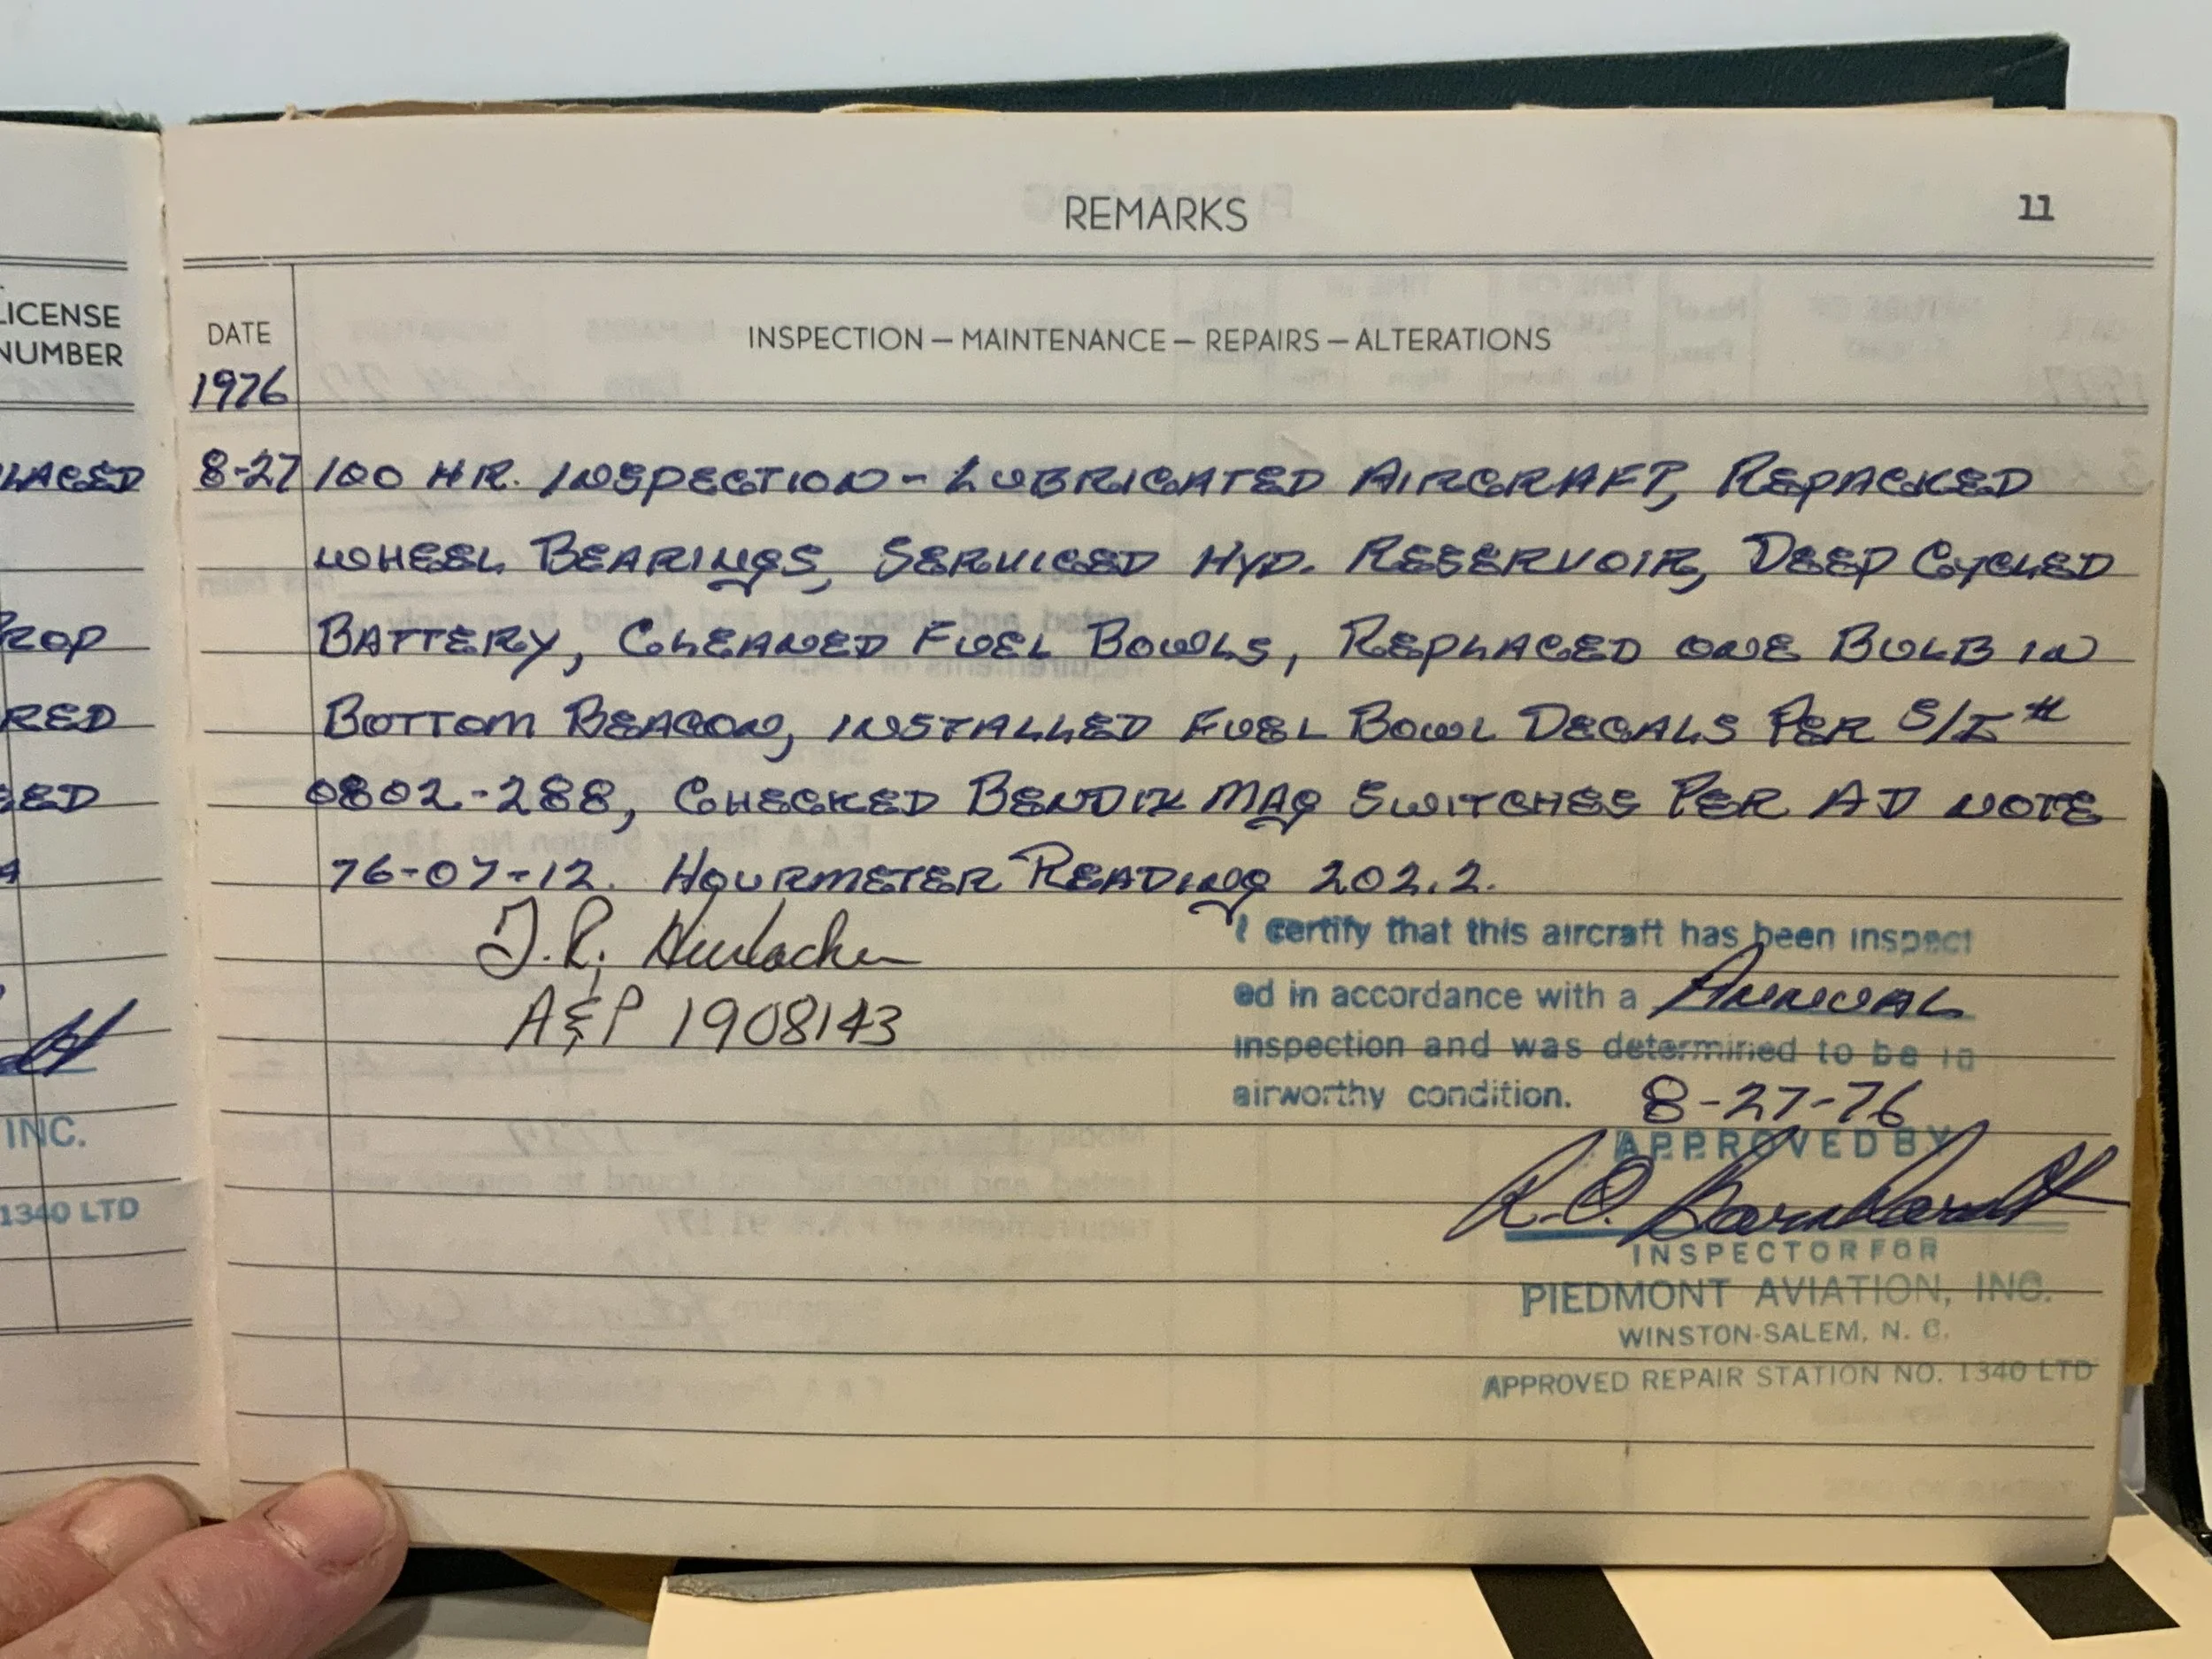 LICENSE
NUMBER
LACED
ROP
RED
INC.
1340 LTD
REMARKS 11
DATE INSPECTION — MAINTENANCE — REPAIRS — ALTERATIONS
1976
8-27 100 HR. INSPECTION - LUBRICATED AIRCRAFT, REPACKED
WHEEL BEARINGS, SERVICED HYD. RESERVOIR, DEEP CYCLED
BATTERY, CLEANED FUEL BOWLS, REPLACED ONE BULB IN
BOTTOM BEACON, INSTALLED FUEL BOWL DECALS PER S/I #
0802-288, CHECKED BENDIX MAG SWITCHES PER AD NOTE
76-07-12. HOURMETER READING 202.2.
J.R.
A&P 1908143
I certify that this aircraft has been inspect
ed in accordance with a ANNUAL
inspection and was determined to be in
airworthy condition. 8-27-76
APPROVED BY
R.O. Barnhardt
INSPECTOR FOR
PIEDMONT AVIATION, INC.
WINSTON-SALEM, N. C.
APPROVED REPAIR STATION NO. 1340 LTD